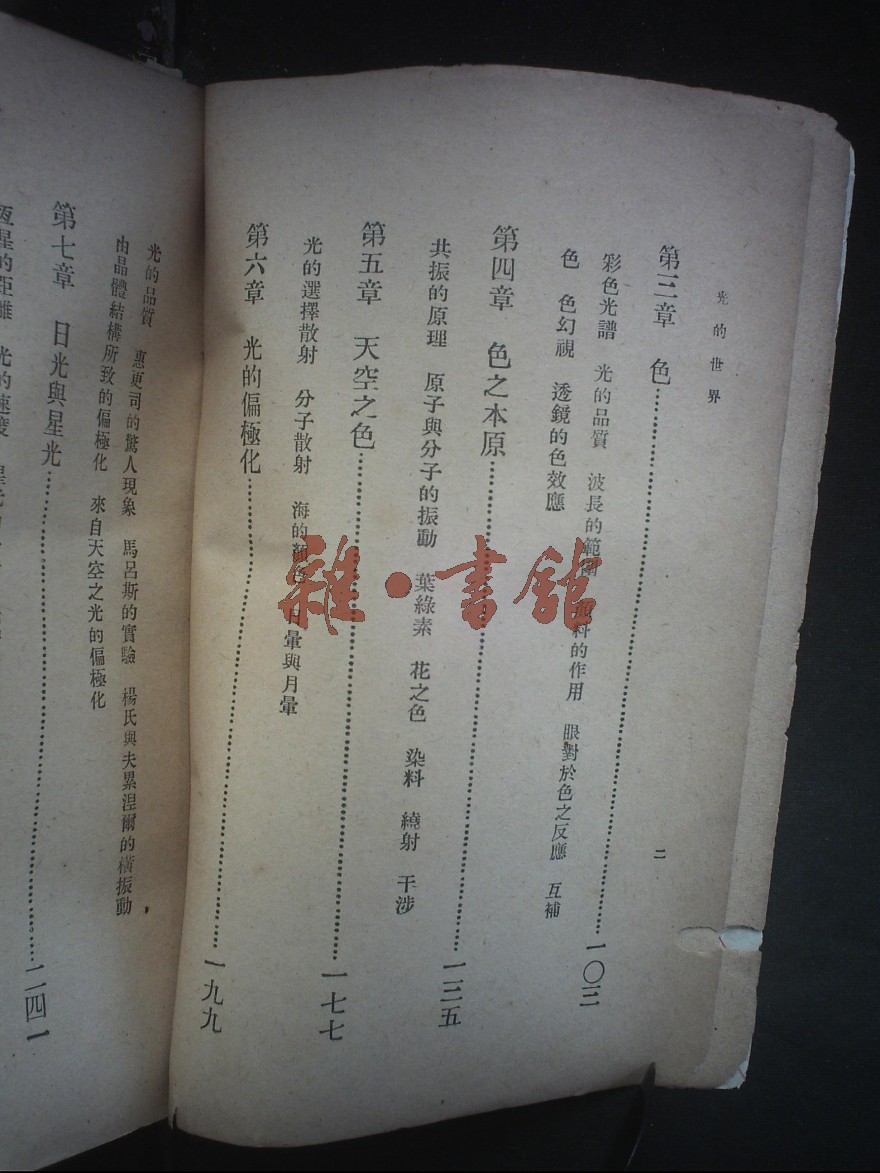 光的世界
二
第三章 色……一〇三
彩色光譜 光的品質 波長的範圍 料的作用 眼對於色之反應 互補
色 色幻視 透鏡的色效應
第四章 色之本原……一三五
共振的原理 原子與分子的振動 葉綠素 花之色 染料 繞射 干涉
第五章 天空之色……一七七
光的選擇散射 分子散射 海的顏色 日暈與月暈
第六章 光的偏極化……一九九
光的品質 惠更司的驚人現象 馬呂斯的實驗 楊氏與夫累涅爾的橫振動
由晶體結構所致的偏極化 來自天空之光的偏極化
第七章 日光與星光……二四一
恆星的距離 光的速度
雜·書館